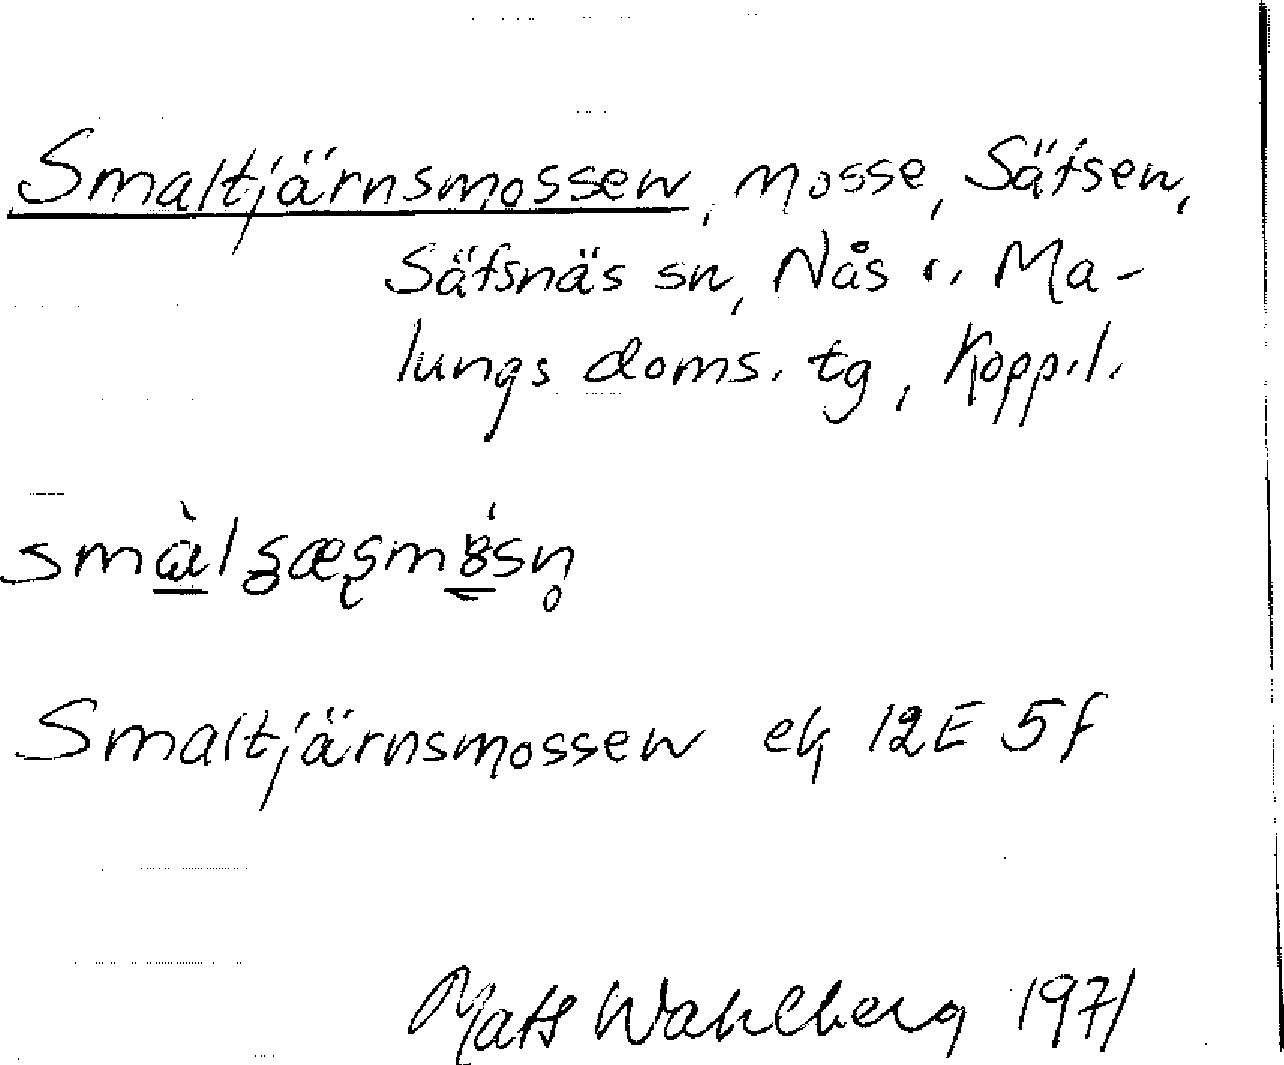 Smaltjärnsmossen, mosse, Säfsen,
Säfsnäs sn, Nås o. Ma-
lungs doms. tg, Kopp.l.
Smaltjärnsmossen ek 12E 5f
Mats Wahlberg 1971